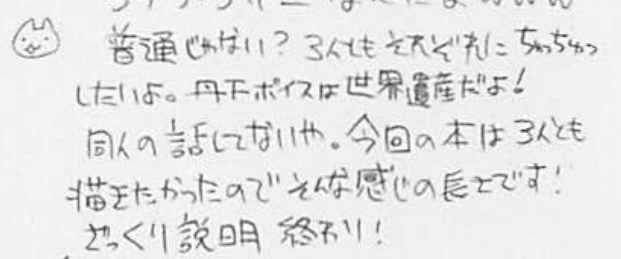 普通じゃない？3人ともそれぞれにちゅっちゅっ
したいよ。丹下ボイスは世界遺産だよ！
同人の話してないや。今回の本は3人とも
描きたかったのでそんな感じの長さです！
ざっくり説明 終わり！